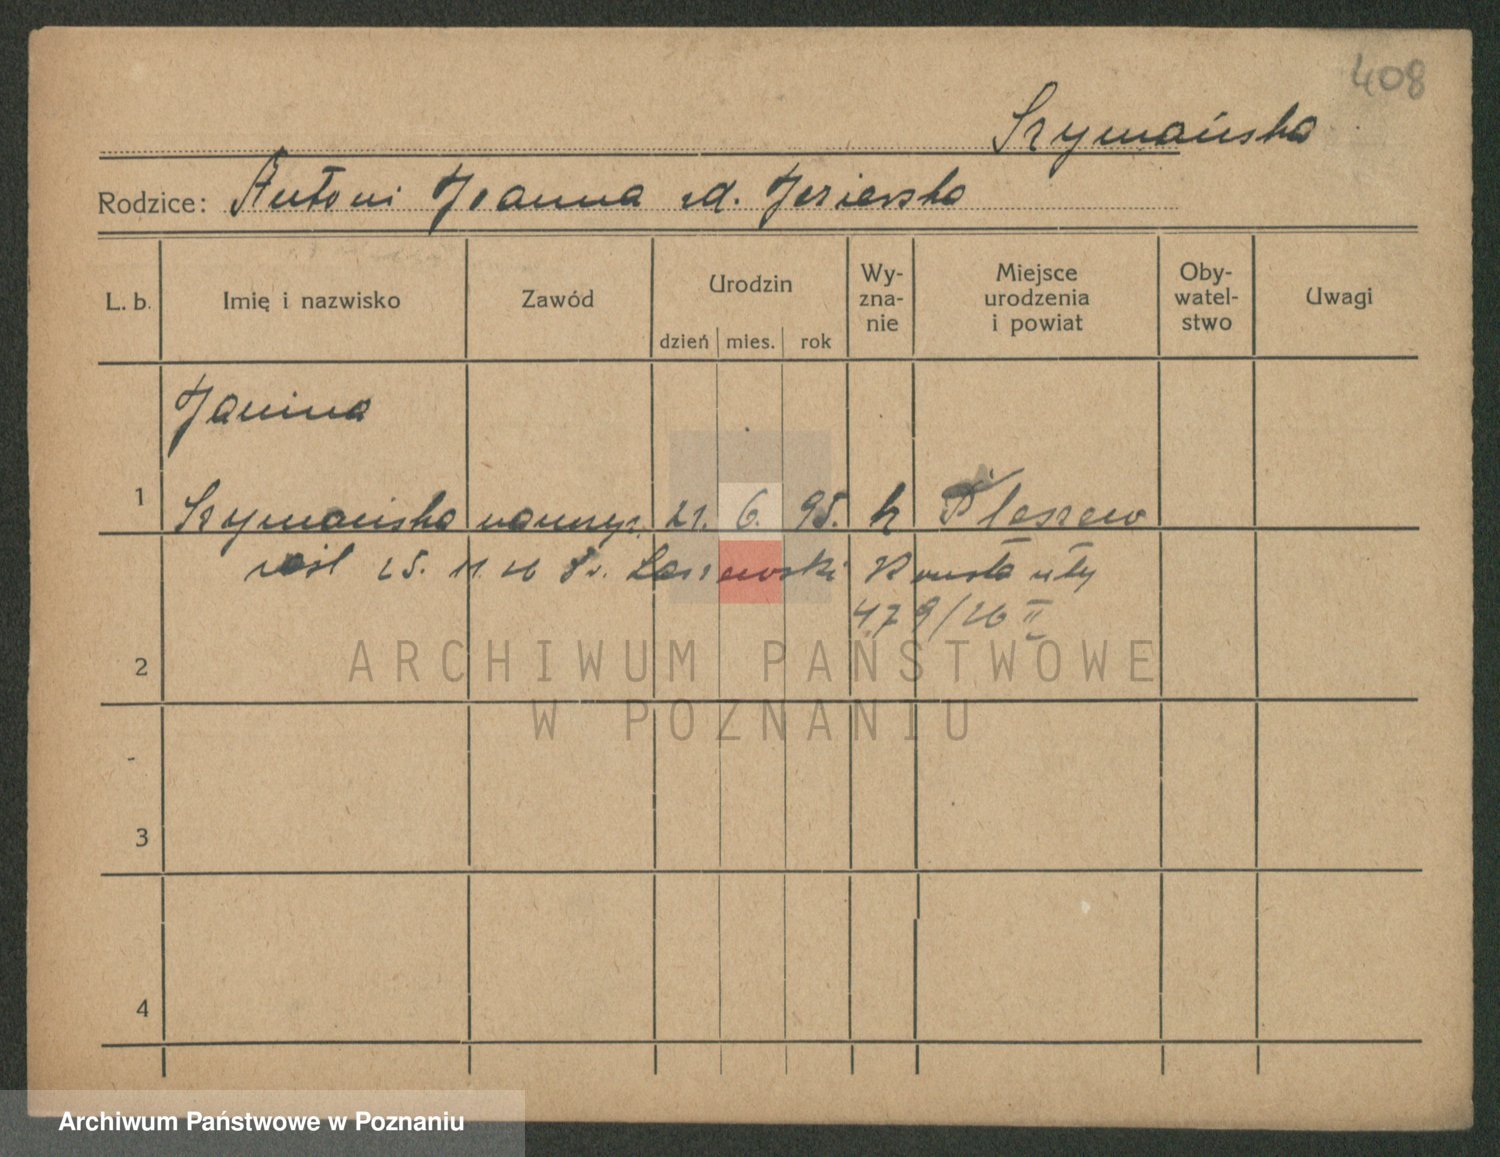 408
Szymańska
Rodzice: Antoni Joanna zd. Jezierska
L. b.
Imię i nazwisko
Zawód
Urodzin
dzień mies. rok
Wy-
zna-
nie
Miejsce
urodzenia
i powiat
Oby-
watel-
stwo
Uwagi
Janina
1 Szymańska naucz. 21. 6. 95. k Pleszew
25. 11. 26 Laszewski Konstanty
479/26 II
2
ARCHIWUM PAŃSTWOWE
W POZNANIU
3
4
Archiwum Państwowe w Poznaniu